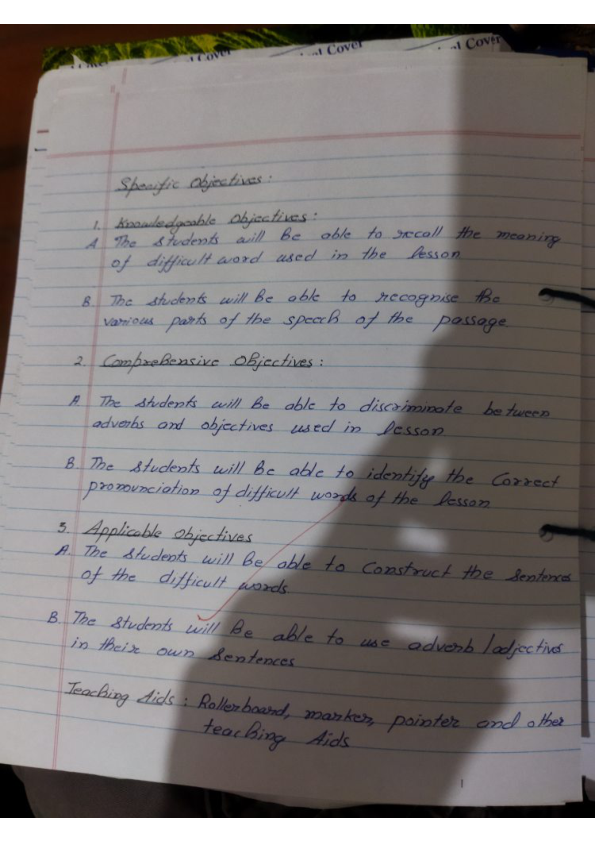 l Cover
al Cover
Specific Objectives:
1. Knowledgeable Objectives:
A The students will be able to recall the meaning
of difficult word used in the lesson
B. The students will be able to recognise the
various parts of the speech of the passage
2. Comprehensive Objectives:
A. The students will be able to discriminate between
adverbs and objectives used in lesson
B. The students will be able to identify the correct
pronounciation of difficult words of the lesson
3. Applicable Objectives
A. The students will be able to construct the sentences
of the difficult words
B. The students will be able to use adverb/adjectives
in their own sentences
Teaching Aids: Rollerboard, marker, pointer and other
teaching Aids